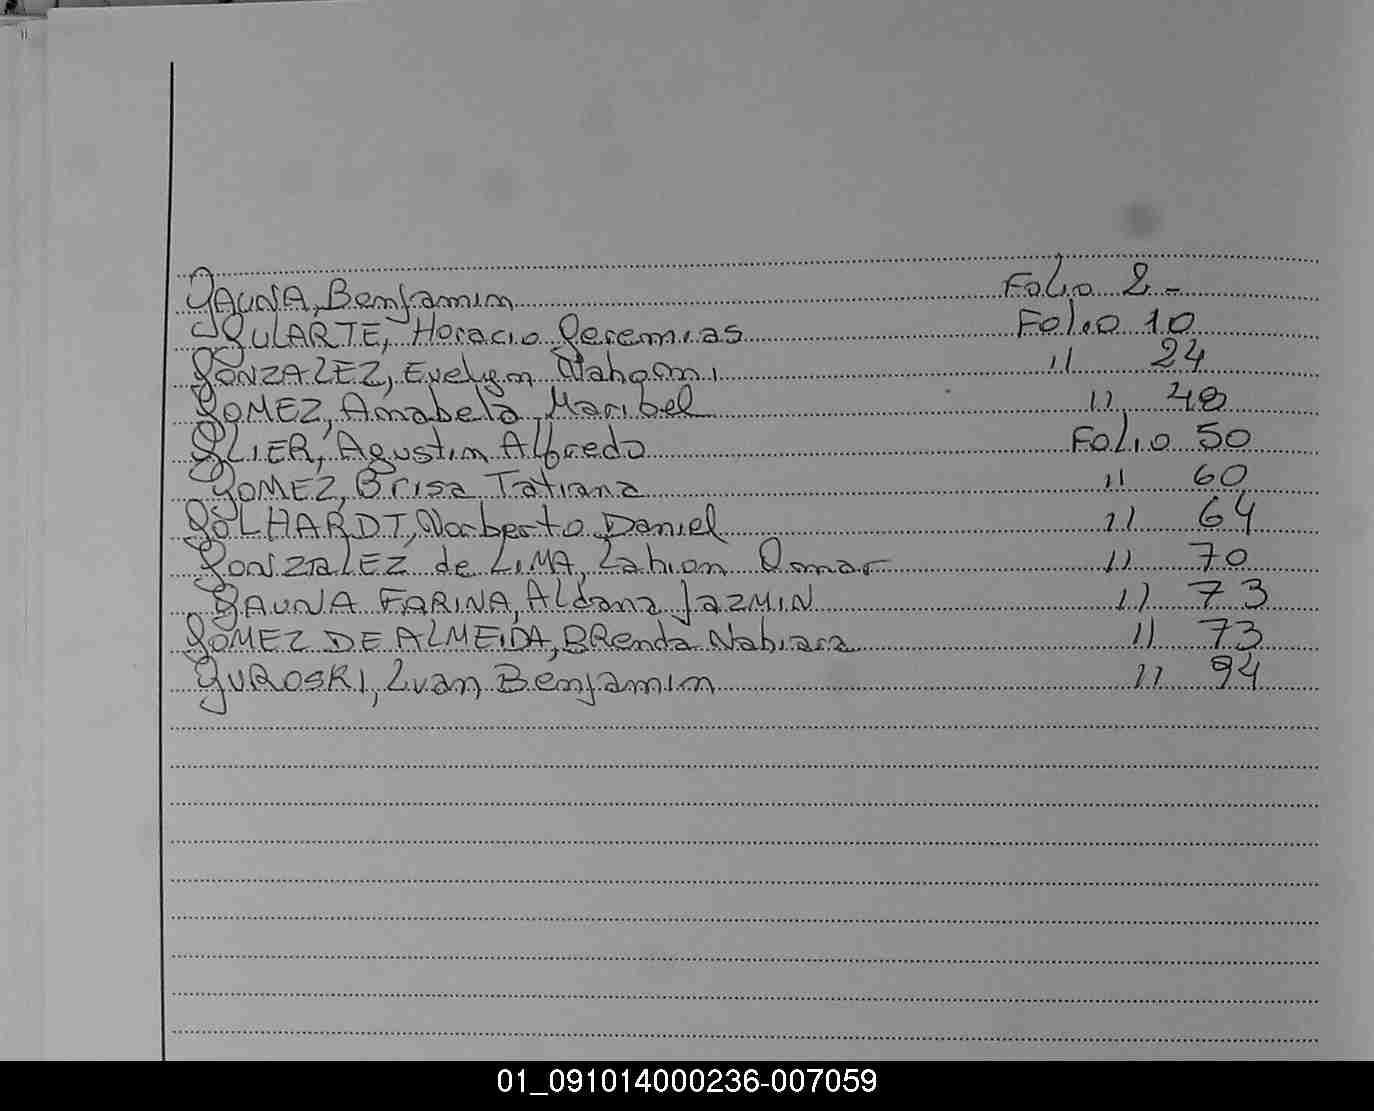 GAUNA, Benjamin Folio 2-
GULARTE, Horacio Geremias Folio 10
GONZALEZ, Evelyn Nahomi " 24
GOMEZ, Anabela Maribel " 48
GLIER, Agustin Alfredo Folio 50
GOMEZ, Brisa Tatiana " 60
GOLHARDT, Norberto Daniel " 64
GONZALEZ de LIMA, Lahion Omar " 70
GAUNA FARINA, Aldana JAZMIN " 73
GOMEZ DE ALMEIDA, BRenda Nahiara " 73
GUROSKI, Ivan Benjamin " 94
01_091014000236-007059